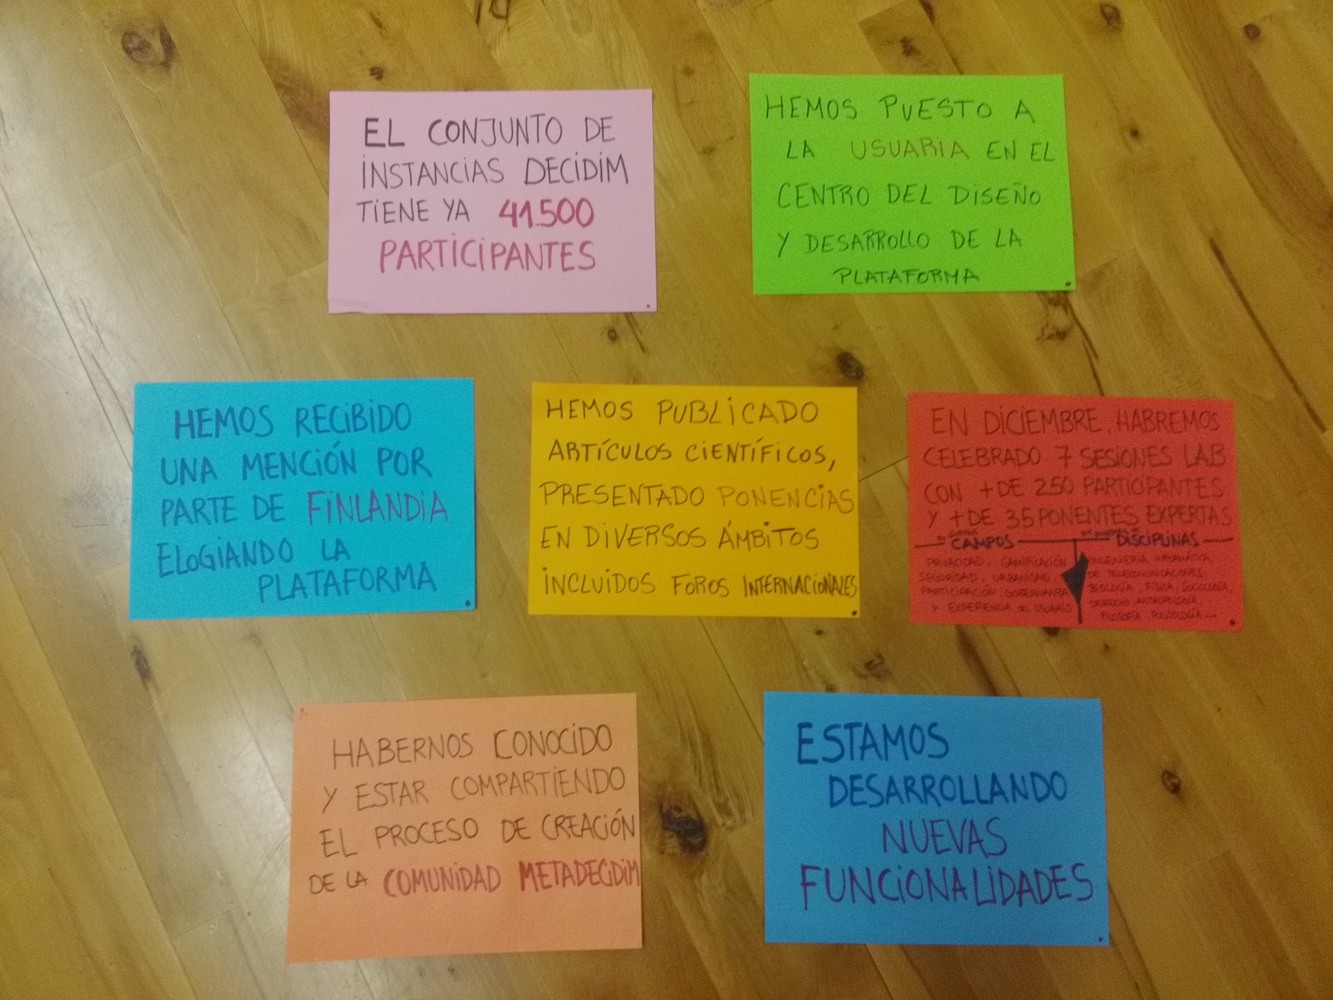 EL CONJUNTO DE
INSTANCIAS DECIDIM
TIENE YA 41.500
PARTICIPANTES
HEMOS PUESTO A
LA USUARIA EN EL
CENTRO DEL DISEÑO
Y DESARROLLO DE LA
PLATAFORMA
HEMOS RECIBIDO
UNA MENCIÓN POR
PARTE DE FINLANDIA
ELOGIANDO LA
PLATAFORMA
HEMOS PUBLICADO
ARTÍCULOS CIENTÍFICOS,
PRESENTADO PONENCIAS
EN DIVERSOS ÁMBITOS
INCLUIDOS FOROS INTERNACIONALES
EN DICIEMBRE, HABREMOS
CELEBRADO 7 SESIONES LAB
CON + DE 250 PARTICIPANTES
Y + DE 35 PONENTES EXPERTAS
CAMPOS
PRIVACIDAD, GAMIFICACIÓN
SEGURIDAD, URBANISMO,
PARTICIPACIÓN, GOBERNANZA
Y EXPERIENCIA DE USUARIO
DISCIPLINAS
INGENIERIA INFORMÁTICA,
DE TELECOMUNICACIONES,
BIOLOGÍA, FÍSICA, SOCIOLOGÍA
DERECHO, ANTROPOLOGÍA,
FILOSOFÍA, PSICOLOGÍA...
HABERNOS CONOCIDO
Y ESTAR COMPARTIENDO
EL PROCESO DE CREACIÓN
DE LA COMUNIDAD METADECIDIM
ESTAMOS
DESARROLLANDO
NUEVAS
FUNCIONALIDADES